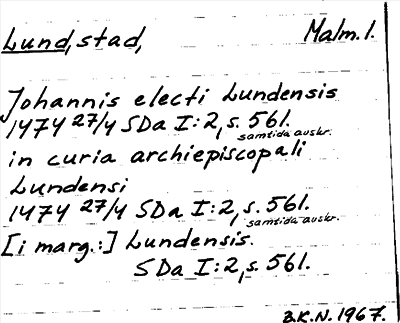 Lund, stad, Malm. l.
Johannis electi Lundensis
1474 27/4 SDa I:2, s. 561.
samtida avskr.
in curia archiepiscopali
Lundensi
1474 27/4 SDa I:2, s. 561.
samtida avskr.
[i marg.:] Lundensis.
SDa I:2, s. 561.
B.K.N. 1967.